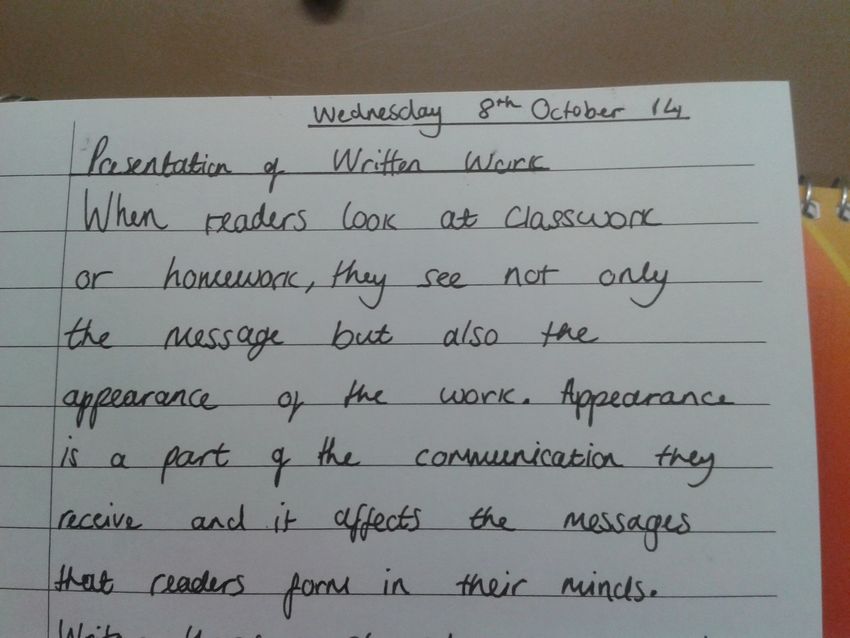 Wednesday 8th October 14
Presentation of Written Work
When readers look at classwork
or homework, they see not only
the message but also the
appearance of the work. Appearance
is a part of the communication they
receive and it affects the messages
that readers form in their minds.